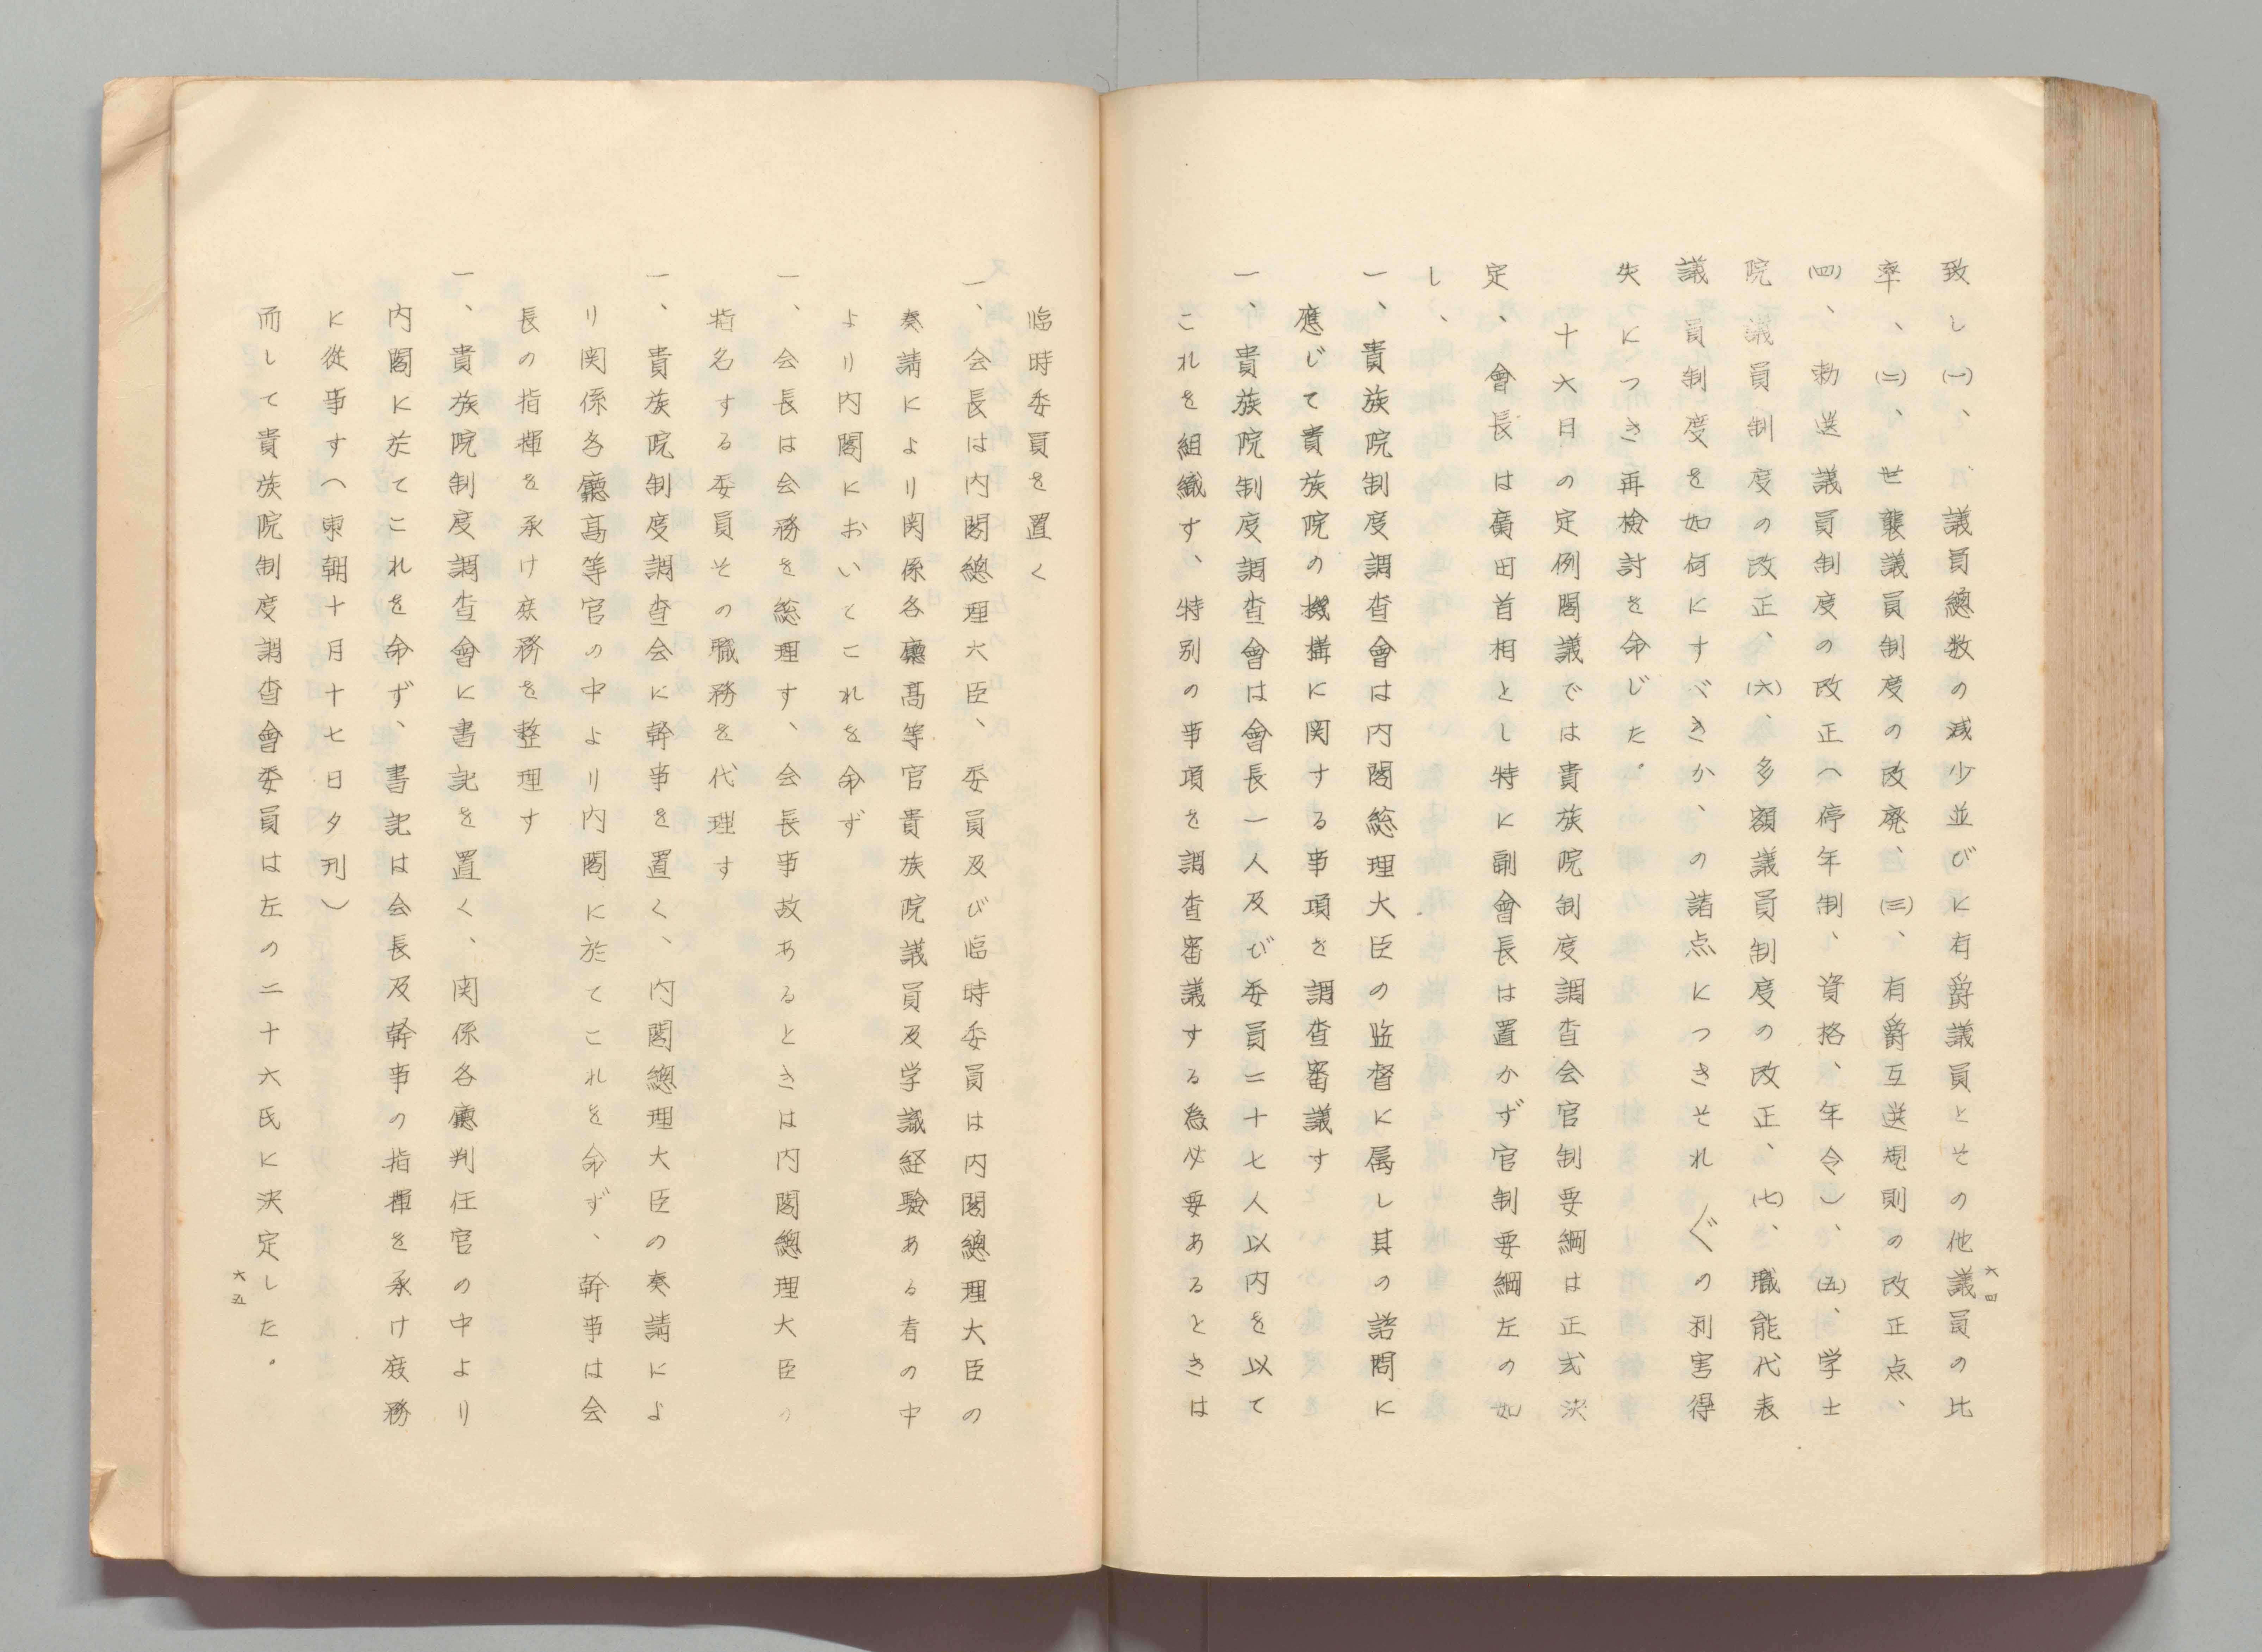 致し(一)、議員總数の減少並びに有爵議員とその他議員の比
率、(二)、世襲議員制度の改廃、(三)、有爵互選規則の改正点、
(四)、勅選議員制度の改正(停年制、資格、年令)、(五)、学士
院議員制度の改正、(六)、多額議員制度の改正、(七)、職能代表
議員制度を如何にすべきか、の諸点につきそれ〲の利害得
失につき再検討を命じた。
十六日の定例閣議では貴族院制度調査会官制要綱は正式決
定、會長は廣田首相とし特に副會長は置かず官制要綱左の如
し、
一、貴族院制度調査會は内閣総理大臣の監督に属し其の諮問に
應じて貴族院の機構に関する事項を調査審議す
一、貴族院制度調査會は會長一人及び委員二十七人以内を以て
これを組織す、特別の事項を調査審議する為必要あるときは
六四
臨時委員を置く
一、会長は内閣總理大臣、委員及び臨時委員は内閣總理大臣の
奏請により関係各廳高等官貴族院議員及学識経驗ある者の中
より内閣においてこれを命ず
一、会長は会務を総理す、会長事故あるときは内閣總理大臣の
指名する委員その職務を代理す
一、貴族院制度調査会に幹事を置く、内閣總理大臣の奏請によ
り関係各廳高等官の中より内閣に於てこれを命ず、幹事は会
長の指揮を承け庶務を整理す
一、貴族院制度調査會に書記を置く、関係各廳判任官の中より
内閣に於てこれを命ず、書記は会長及幹事の指揮を承け庶務
に從事す(東朝十月十七日夕刊)
而して貴族院制度調査會委員は左の二十六氏に決定した。
六五